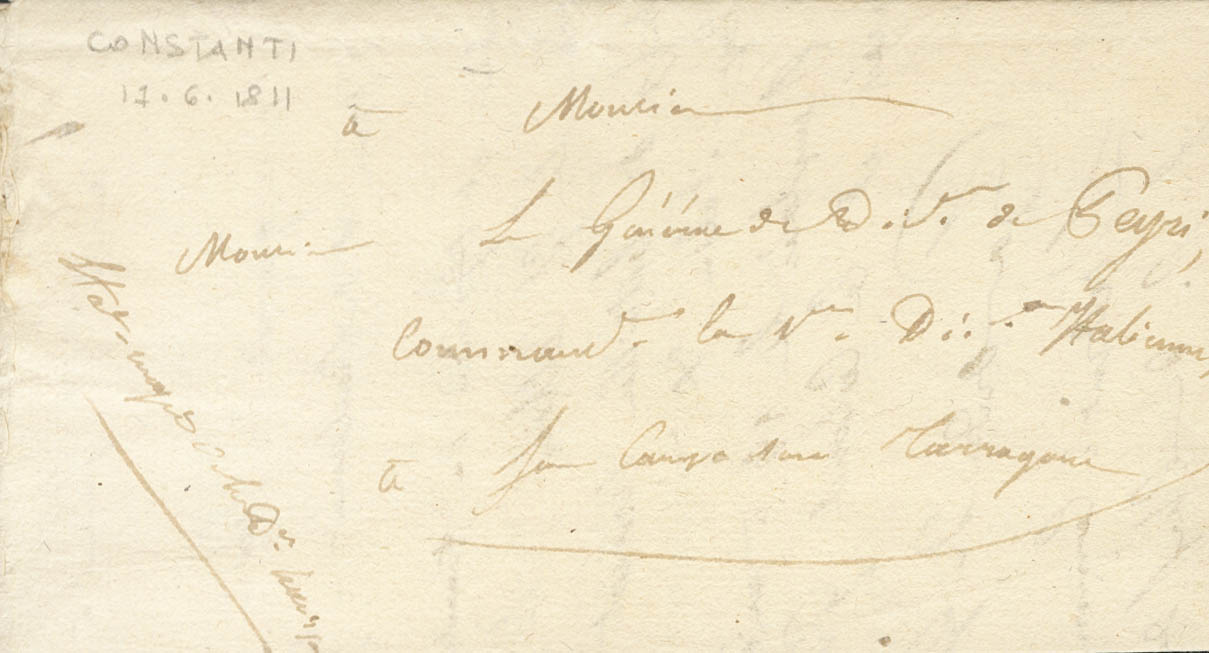 CONSTANTI
17.6.1811
à Monsieur
Monsieur
Le Général de Div.on de Peyri,
Command.t la D.on Italienne,
à son Camp sous Tarragone